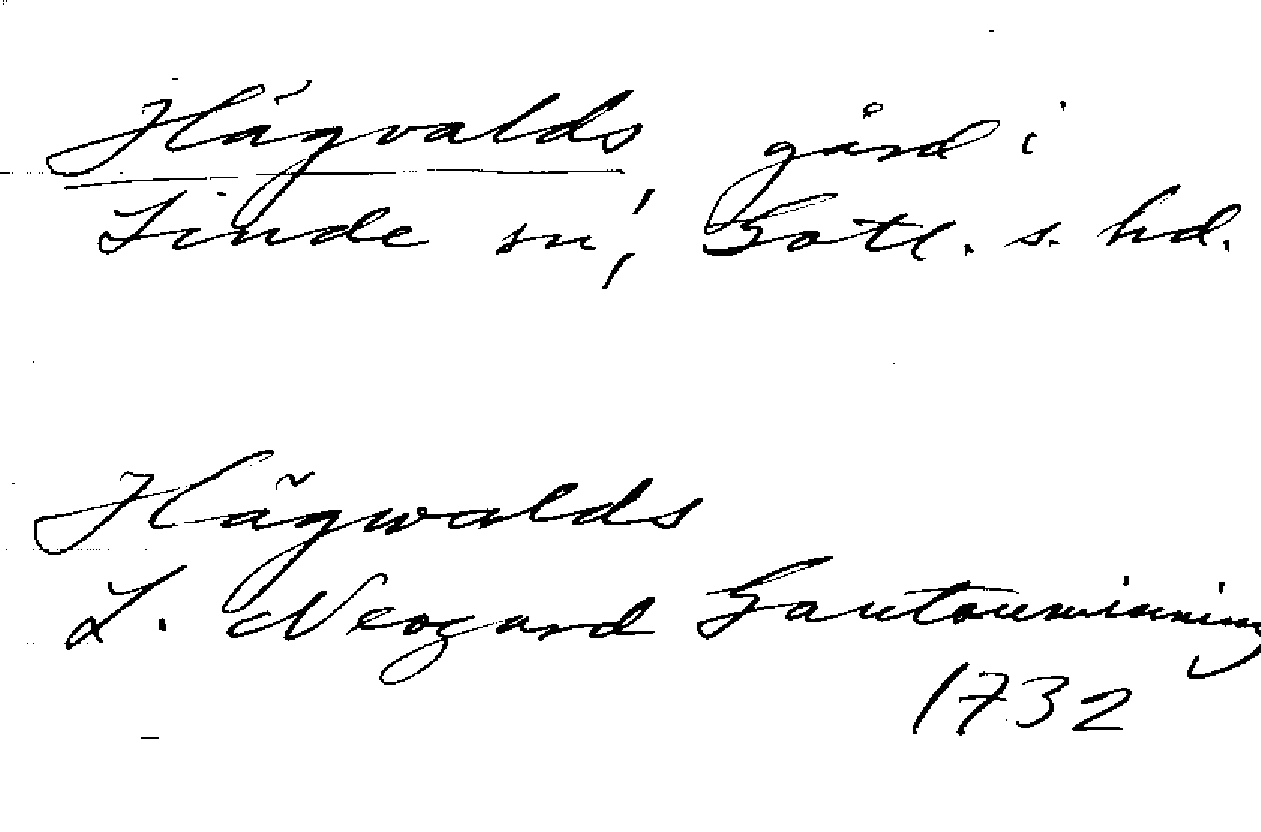 Hägvalds gård i
Linde sn, Gotl. s. hd.
Hägwalds
L. Neogard Gautauminning
1732